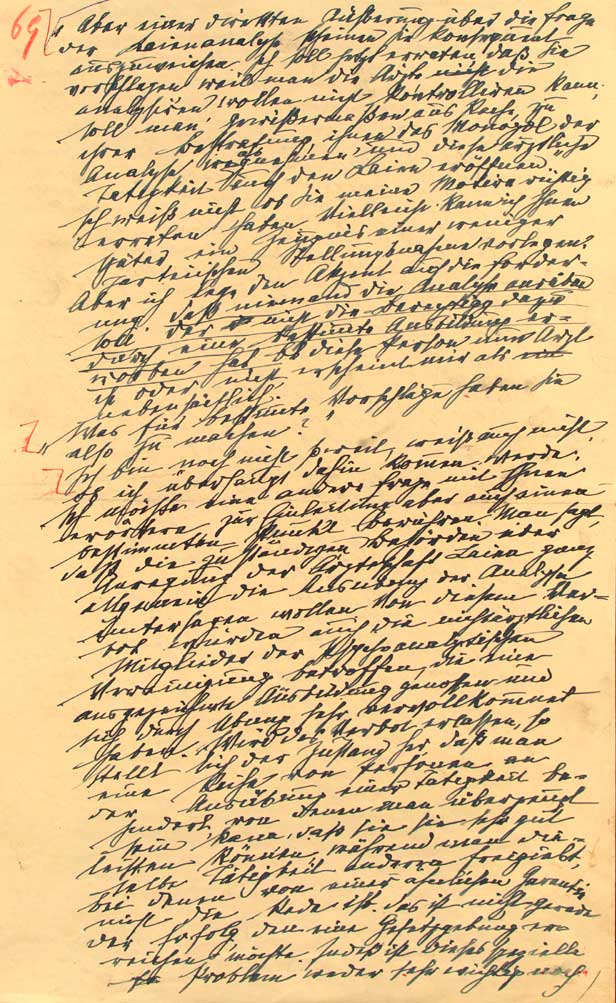 69
„Aber einer direkten Äußerung über die Frage
der Laienanalyse scheinen Sie konsequent
auszuweichen. Ich soll jetzt erraten, daß Sie
vorschlagen, weil man die Ärzte nicht die
analysiren wollen nicht kontrolliren kann,
soll man, gewissermaßen aus Rache, zu
ihrer Bestrafung, ihnen das Monopol der
Analyse abnehmen und diese ärztliche
Tätigkeit auch den Laien eröffnen.“
Ich weiß nicht ob Sie meine Motive richtig
erraten haben. Vielleicht kann ich Ihnen
später ein Zeugnis einer weniger
parteiischen Stellungnahme vorlegen.
Aber ich lege den Akzent auf die Forder-
ung, daß niemand die Analyse ausüben
soll, der nicht die Berechtigg dazu
durch eine bestimte Ausbildung er-
worben hat. Ob diese Person nun Arzt
ist oder nicht, erscheint mir als
nebensächlich.
„Was für bestimte Vorschläge haben Sie
also zu machen?“
Ich bin noch nicht so weit, weiß auch nicht,
ob ich überhaupt dahin kommen werde.
Ich möchte eine andere Frage mit Ihnen
erörtern, zur Einleitung aber auch einen
bestimmten Punkt berühren. Man sagt,
daß die zuständigen Behörden über
Anregung der Ärzteschaft Laien ganz
allgemein die Ausübung der Analyse
untersagen wollen. Von diesem Ver-
bot würden auch die nichtärztlichen
Mitglieder der Psychoanalytischen
Vereinigung betroffen, die eine
ausgezeichnete Ausbildung genossen und
sich durch Übung sehr vervollkommnet
haben. Wird das Verbot erlassen, so
stellt sich der Zustand her, daß man
eine Reihe von Personen an
der Ausübung einer Tätigkeit be-
hindert, von denen man überzeugt
sein kann, daß sie sie sehr gut
leisten können, während man die-
selbe Tätigkeit anderen freigiebt,
bei denen von einer ähnlichen Garantie
nicht die Rede ist. Das ist nicht gerade
der Erfolg, den eine Gesetzgebung er-
reichen möchte. Indeß ist dieses spezielle
Problem weder sehr wichtig noch